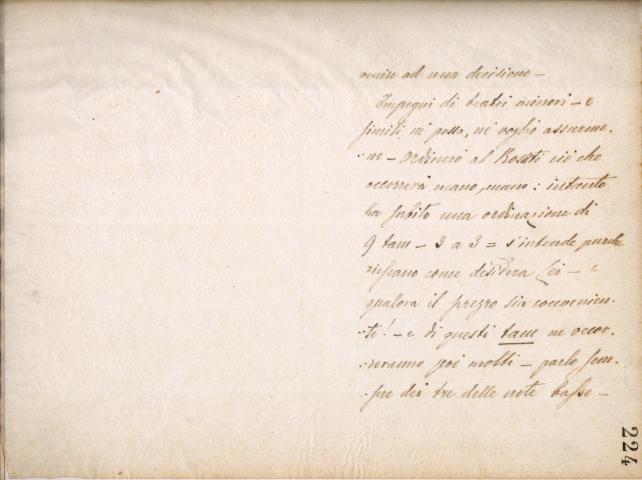 venire ad una decisione –
Impegni di teatri minori – e
simili nè posso, nè voglio assumer-
-ne – Ordinerò al Rosati ciò che
occorrerà mano, mano: intanto
ha subito una ordinazione di
9 tam – 3 a 3 = s'intende purchè
riescano come desidera Lei – e
qualora il prezzo sia convenien-
-te! – e di questi tam ne occor-
-reranno poi molti – parlo sem-
-pre dei tre delle note basse –
224